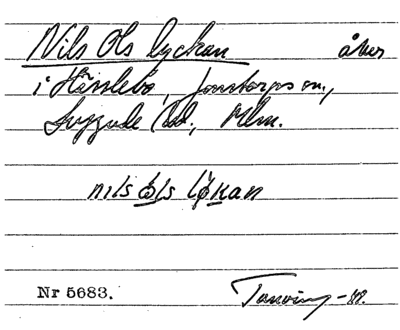 Nils Ols lyckan åker
i Hässlebo, Jonstorps sn,
Luggude hd, Mlm.
nils ols lykan
Nr 5683.